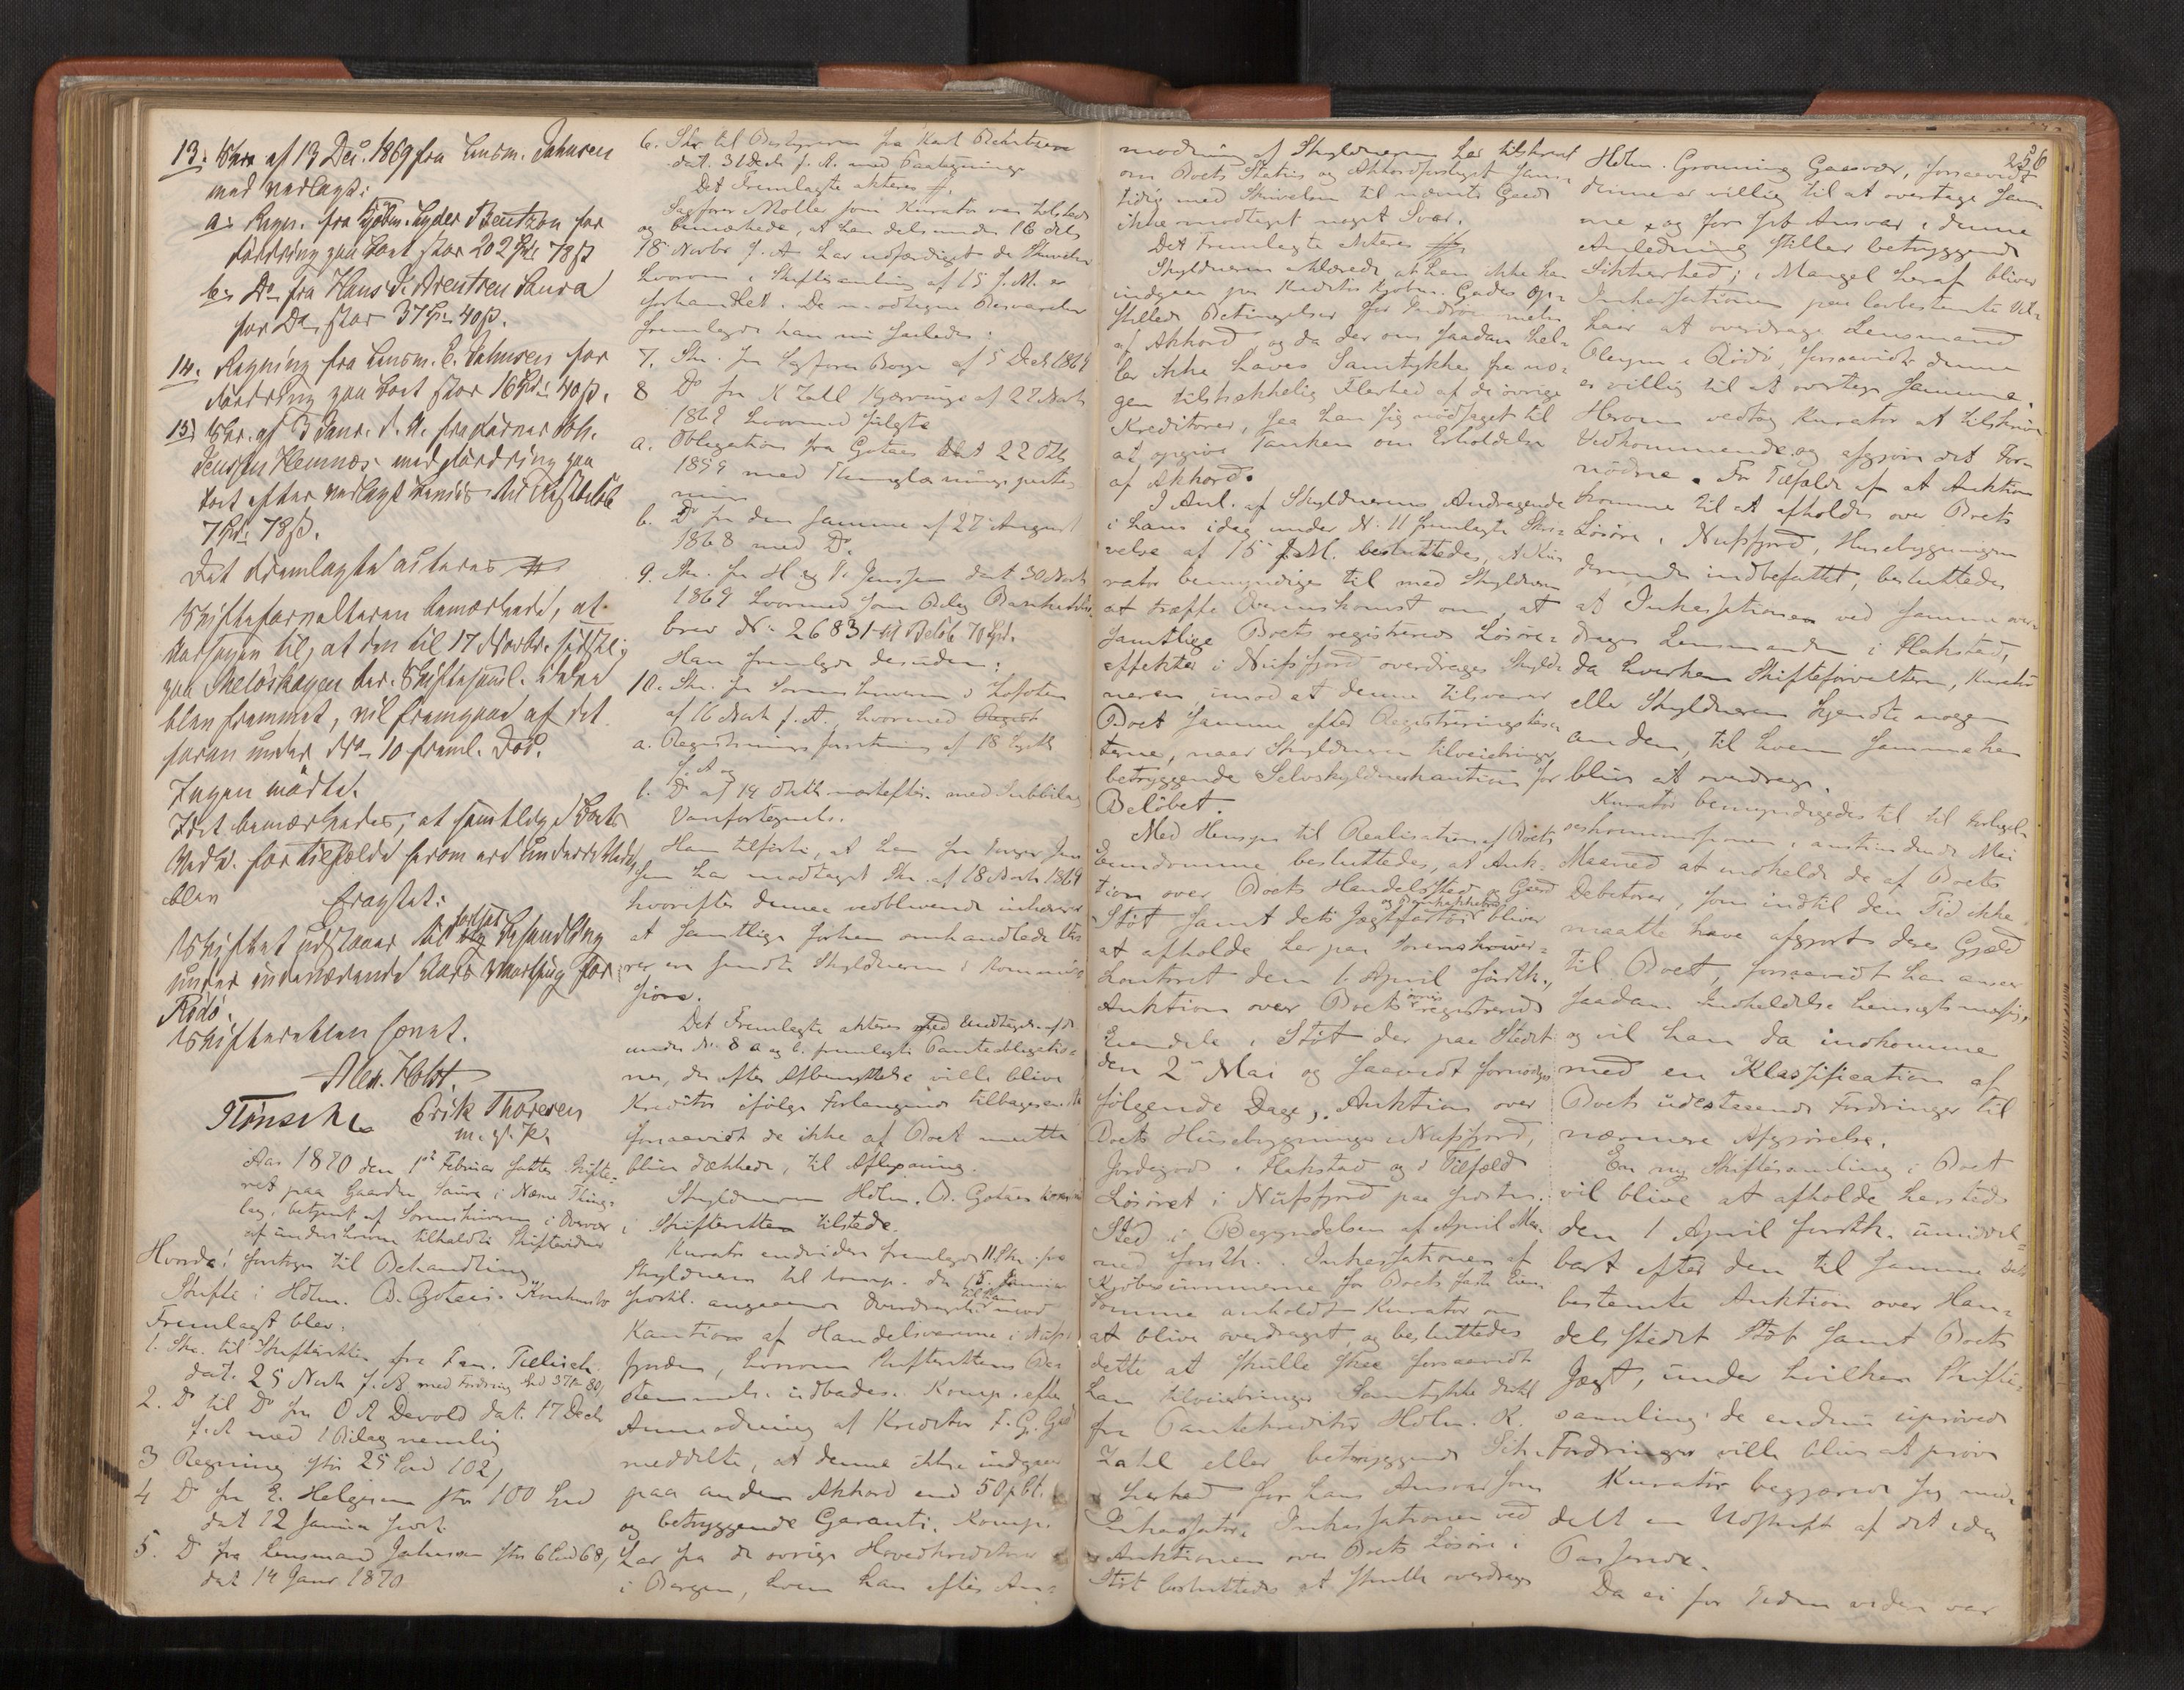 13. Skr. af 13 Dec. 1869 fra Lensm. Johnsen
med vedlagt:
a. Regn. fra Kjøbm. Lyder Bentzon for
fordring paa boet stor 202 Spd 78 ß
b. Do fra Hans P. Arentsen Saura
for Do stor 37 Spd 40 ß.
14. Regning fra Lensm. E. Johnsen for
fordring paa boet stor 16 Spd 40 ß.
15. Skr. af 3 Janr. d. A. fra
Hemnæs med fordring paa
boet efter vedlagt
7 Spd 78 ß.
Det Fremlagte acteres
Skifteforvalteren bemærkede, at
Aarsagen til, at den til 17 Novbr. sidstl.
paa Meløskagen ber. Skiftesaml. ikke
blev fremmet, vil fremgaae af det
foran under No 10 freml. Dok.
Ingen mødte.
Det bemærkedes, at samtlige Boets
Vedk. for Tilfælde herom ere underrettede
blev fragtet:
Skiftet udstaaer til fortsat Behandling
under indeværende Aars Vaarthing for
Rødø.
Skifteretten hævet.
Alex. Holst.
Erik Thoresen
m. p. P.
Aar 1870 den 1ste Februar sattes Skifte-
ret paa Gaarden Saura i Næsne Thing-
lag, betjent af Sorenskriveren i Overvær
af underskrevne tilkaldte Skiftevidner
Hvorda! foretoges til Behandling
Skifte i Hdlm. B. Gotaas Konkursbo
Fremlagt blev:
1. Skr. til Skifteretten fra Fan. Tellisch
dat. 25 Novb f. A. med Fordring
2. Do til Do fra O A Devold dat. 17 Decb
f. A med 1 Bilag nemlig
3 Regning stor 25 Spd 102,
4 Do fra E. Helgesen stor 100 Spd
dat 12 Januar
5. Do fra Lensmand Johnsen stor 6 Spd 68,
dat 14 Janr 1870
6. Skr til Bestyreren fra Karl
dat. 31 Decb f. A. med Paategning
Det Fremlagte akteres
Sagfører Møller som Kurator var tilstede
og bemærkede, at han dels under 16 dels
18 Novbr f. A har udfærdiget de Skrivelser
hvorom i Skiftesamling af 15 f. M. er
forhandlet. De modtagne Besvarelser
fremlagde han nu saaledes:
7. Skr. fra Sagfører Borge af 5 Decb 1869
8 Do fra K Zahl Kjærringø af 22 Novb
1869 hvormed fulgte
a. Obligation fra Gotaas dat 22 Oktb
1859 med Thinglæsnings
b. Do fra den samme af 27 August
1868 med Do.
9. Skr. fra H og P. Jenssen dat 30 Novb
1869 hvormed som Bilag
brev No. 26831 Beløb 70 Spd.
Han fremlagde desuden:
10. Skr. fra Sorenskriveren i Lofoten
af 16 Novb f. A., hvormed
a. Registreringsforretning af 18
f. A og
b. Do af 14 Oktb næstefter. med Subbilag
Vareforteg­nelse.
Han tilførte, at han fra
har modtaget Skr. af 18 Novb 1869
hvorefter denne vedblivende
at samtlige forhen omhandlede
er ere sendte Skyldneren i Kommis-
sion.
Det Fremlagte akteres med Undtagelse af de
under No. 8 a og b. fremlagte Panteobligatio-
ner, der efter Afbenyttelse ville blive
Kreditor ifølge Forlangende tilbagesendte
forsaavidt de ikke af Boet maatte
blive dækkede, til Aflysning.
Skyldneren Hdlm. B. Gotaas
i Skifteretten tilstede.
Kurator endvidere fremlagde 11 Skr. fra
Skyldneren til Komp. da 15 Januar
angaaende Overdragelse til ham mod
Kaution af Handelsvarerne i Nufs-
fjorden, hvorom Skifterettens Be-
stemmelse udbades. Komp. efter
Anmodning af Kreditor F. G. Gade
meddelte, at denne ikke indgaar
paa anden Akkord end 50 pCt.
og betryggende Garanti. Komp.
har fra de øvrige Hovedkreditorer
i Bergen, hvem han efter An-
modning af Skyldneren har tilskrevet
om Boets Status og Akkordforslaget sam-
tidig med Skrivelsen til nævnte Gade
ikke modtaget noget Svar.
Det Fremlagte akteres
Skyldneren erklærede, at han ikke kan
indgaa paa Kreditor Kjøbm. Gades op-
stillede Betingelser for Indrømmelse
af Akkord og da der om saadan hel-
ler ikke haves Samtykke fra no-
gen tilstrækkelig Flerhed af de øvrige
Kreditorer, saa han sig nødsaget til
at opgive Tanken om Erholdelse
af Akkord.
I Anl. af Skyldnerens Andragende
i hans idag under No. 11 fremlagte Skri-
velse af 15 f. M. besluttedes, at Ku-
rator bemyndiges til med Skyldneren
at træffe Overenskomst om, at
samtlige Boets registrerede Løsøre-
effekter i Nufsfjord overdrages Skyld-
neren imod at denne tilsvarer
Boet samme efter Registreringstax-
terne, naar Skyldneren tilveiebringer
betryggende Selvskyldnerkaution for
Beløbet.
Med Hensyn til Realisation af Boets
Eiendomme besluttedes, at Auk-
tion over Boets Handelssted og Gaard
Støt samt dets Jægtfartøi bliver
at afholde her paa Sorenskriver-
kontoret den 1 April førstk.,
Auktion over Boets øvrige registrerede
Eiendele i Støt der paa Stedet
den 2den Mai og saavidt fornødiges
følgende Dage, Auktion over
Boets Husebygninger i Nufsfjord,
Jordegods i Flakstad og i Tilfælde
Løsøret i Nufsfjord paa første
Sted i Begyndelsen af April Maa-
ned førstk. Inkassationen af
Kjøbesummerne for Boets faste Eien-
domme anholdt Kurator om
at blive overdraget, og besluttedes
dette at skulle skee forsaavidt
han tilveiebringer Samtykke dertil
fra Pantekreditor Hdlm. K.
Zahl eller betryggende Sik-
kerhed for hans Ansvar som
Inkassator. Inkassationen ved
Auktionen over Boets Løsøre i
Støt besluttedes at skulle overdrages
256
Hdlm. Grønning Gaasvær, forsaavidt
denne er villig til at overtage sam-
me, og for sit Ansvar i denne
Anledning stiller betryggende
Sikkerhed; i Mangel heraf bliver
Inkassationen paa lovbestemte Vil-
kaar at overdrage Lensmand
Olesen i Rødø, forsaavidt denne
er villig til at overtage samme.
Herom vedtog Kurator at tilskrive
Vedkommende og afgjøre det For-
nødne. For Tilfælde af at Auktion
kommer til at afholdes over Boets
Løsøre i Nufsfjord, Husebygningen
derunder indbefattet, besluttedes
at Inkassationen ved samme over-
drages Lensmanden i Flakstad,
da hverken Skifteforvalteren, Kurator
eller Skyldneren kjendte nogen
anden, til hvem samme kan
blive at overdrage.
Kurator bemyndigedes til til Forligel-
seskommissionen i anstundende Mai
Maaned at indkalde de af Boets
Debitorer, som indtil den Tid ikke
maatte have afgjort deres Gjæld
til Boet, forsaavidt han anser
saadan Indkaldelse hensigtsmæssig,
og vil han da indkomme
med en Klassification af
Boets udestaaende Fordringer til
nærmere Afgjørelse.
En ny Skiftesamling i Boet
vil blive at afholde hersteds
den 1 April førstk. umiddel-
bart efter den til samme Tid
bestemte Auktion over Han-
delsstedet Støt samt Boets
Jægt, under hvilken Skifte-
samling de endnu uprøvede
Fordringer ville blive at prøve
Kurator begjærede sig med-
delt en Udskrift af det idag
Passerede.
Da ei for Tiden videre var